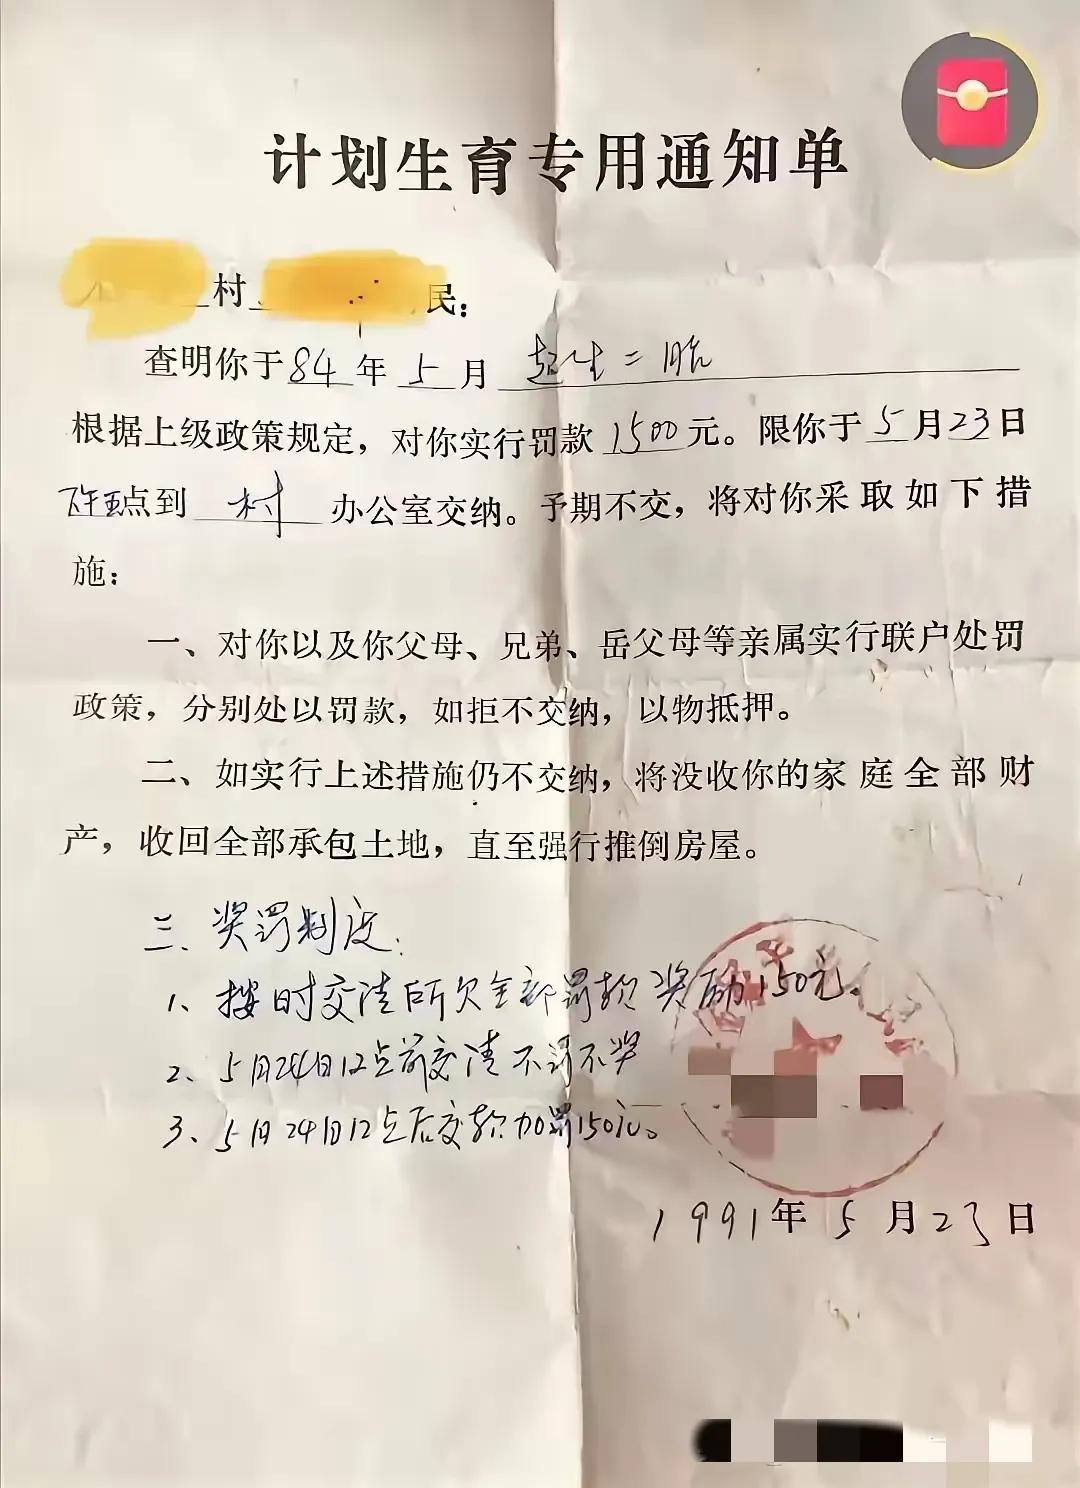 计划生育专用通知单
村 民：
查明你于84年5月超生二胎
根据上级政策规定，对你实行罚款1500元。限你于5月23日
下午五点到村办公室交纳。予期不交，将对你采取如下措
施：
一、对你以及你父母、兄弟、岳父母等亲属实行联户处罚
政策，分别处以罚款，如拒不交纳，以物抵押。
二、如实行上述措施仍不交纳，将没收你的家庭全部财
产，收回全部承包土地，直至强行推倒房屋。
三、奖罚制度：
1、按时交清所欠全部罚款奖励150元。
2、5月24日12点前交清不罚不奖
3、5月24日12点后交款加罚150元。
1991年5月23日